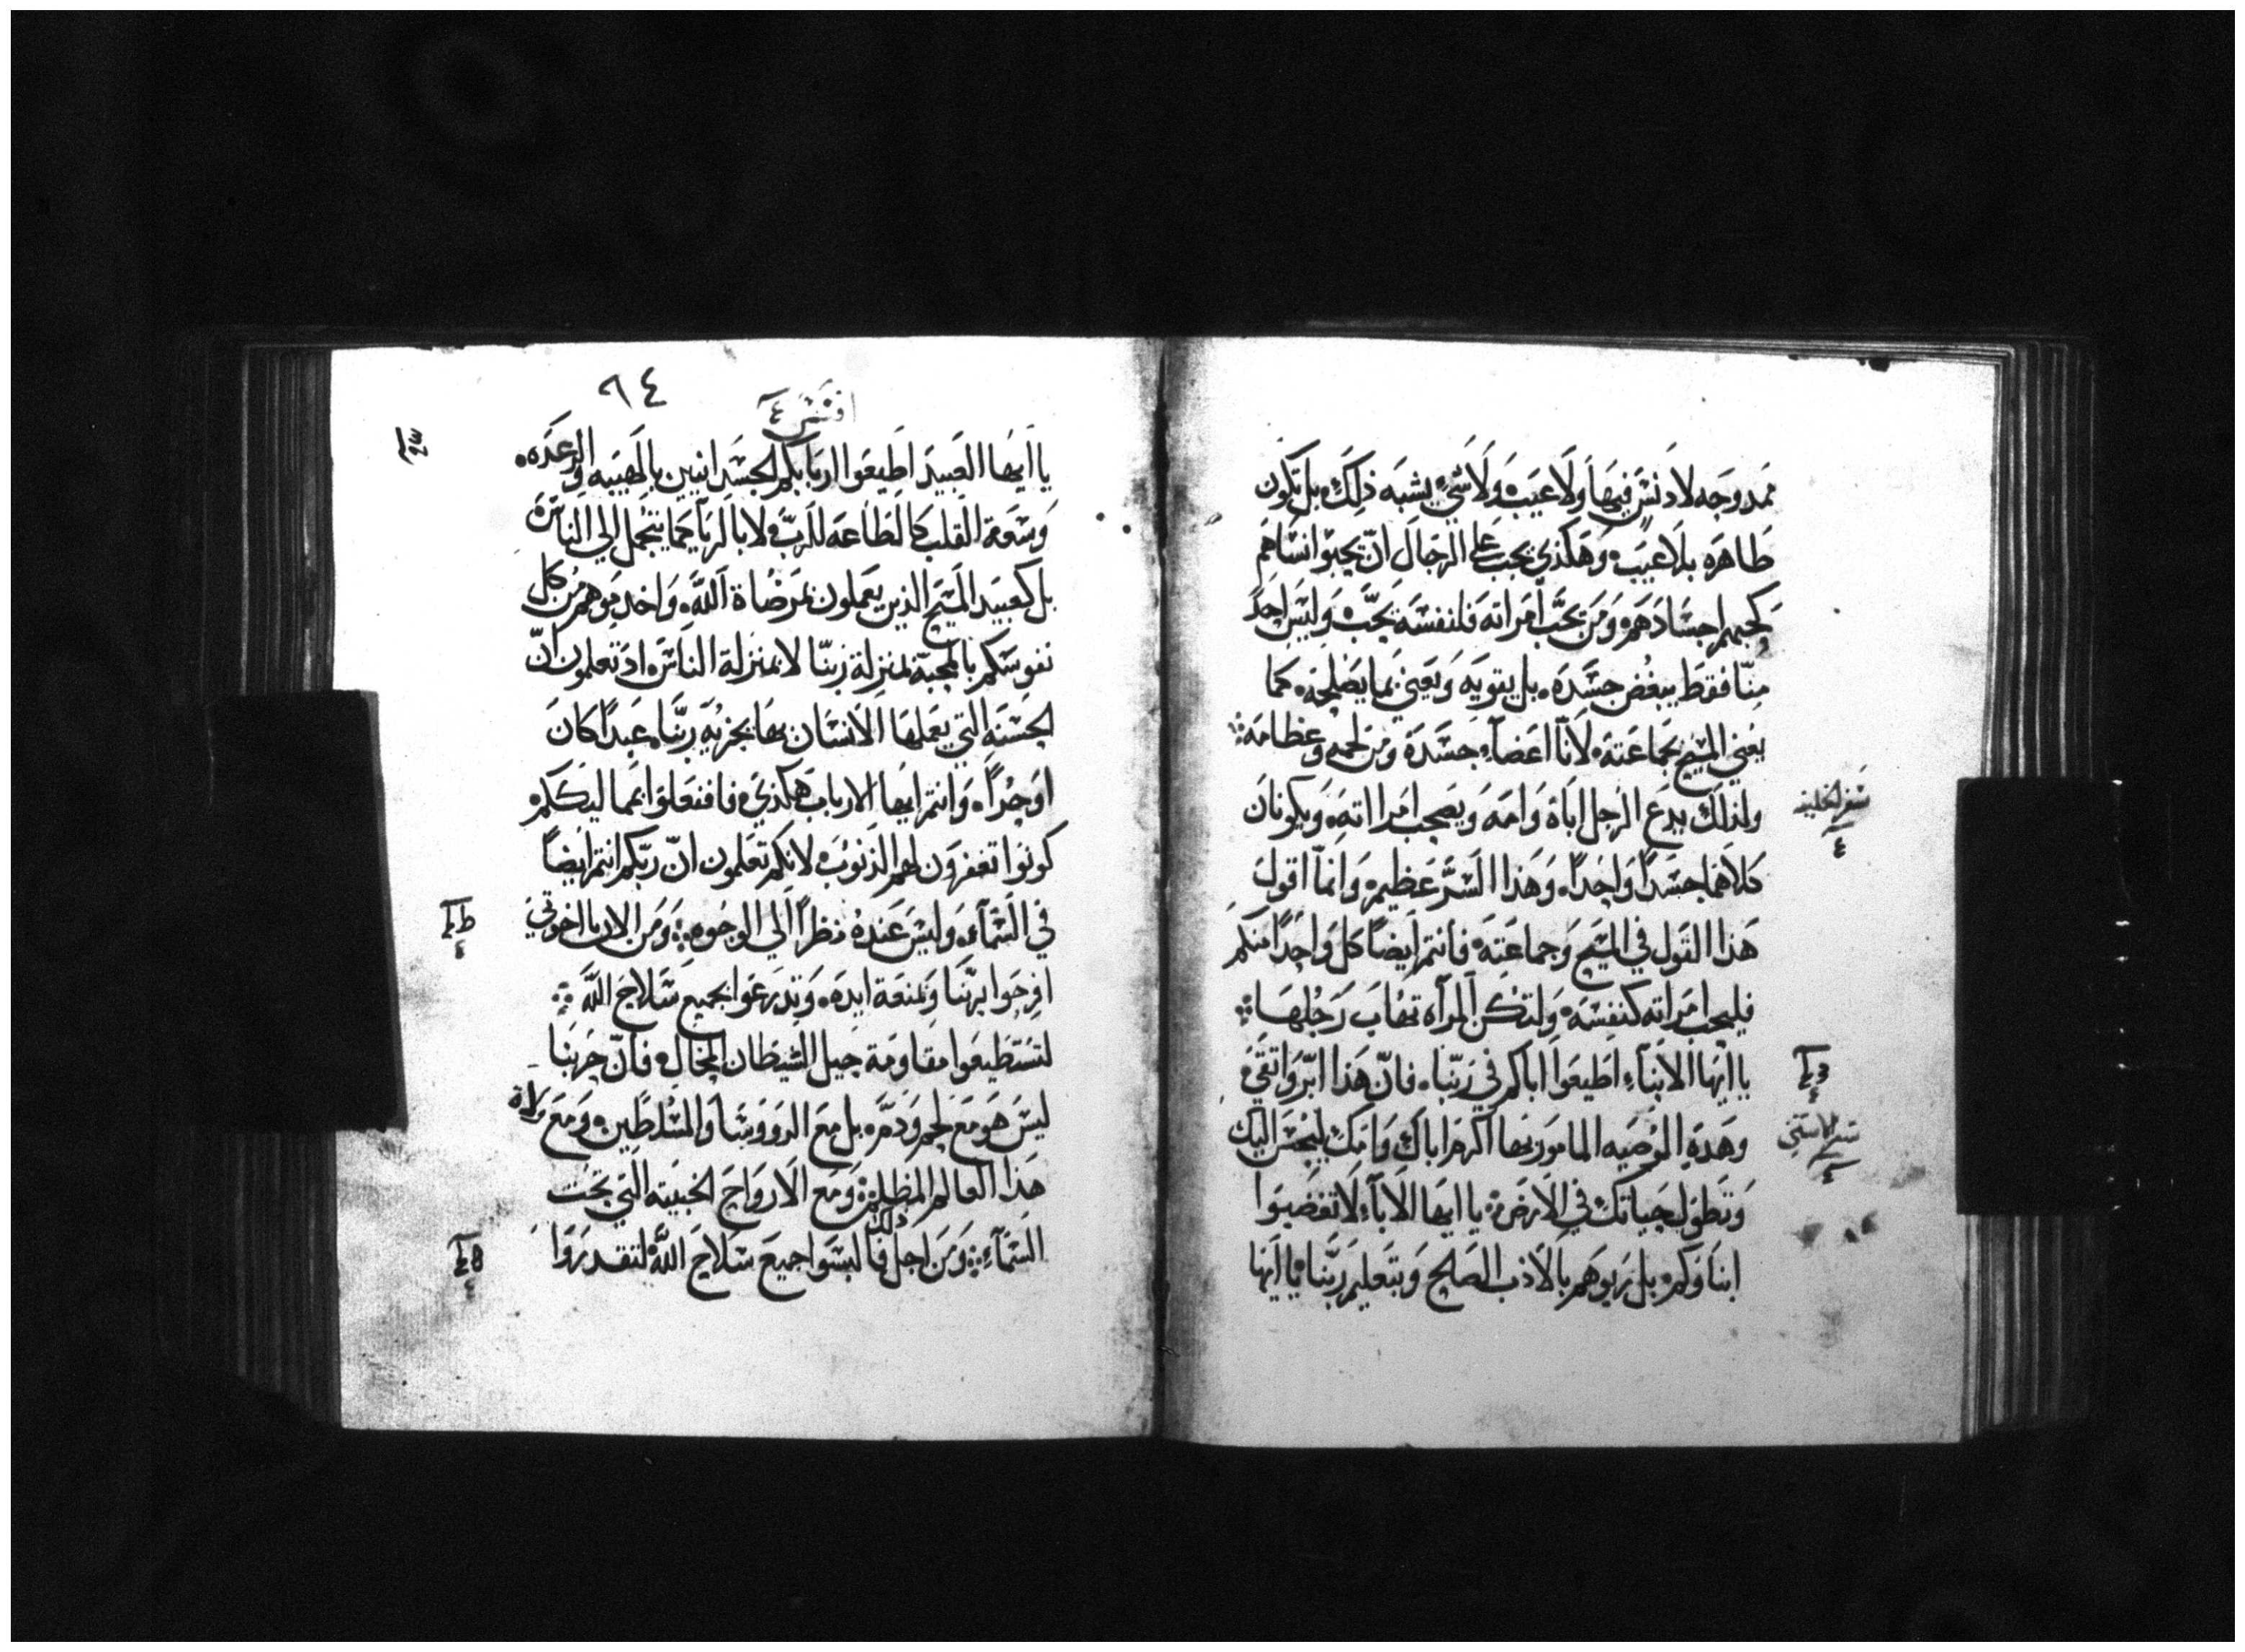 ممدوجه لا دنس فيها ولا عيب ولا شي يشبه ذلك بل تكون
طاهره بلا عيب وهكذي يجب علي الرجال ان يحبوا نساهم
كحبهم اجسادهم ومن يحب امراته فلنفسه يحب وليس احد
منا فقط يبغض جسده بل يقويه ويعني بما يصلحه كما
يعني المسيح بجماعته لانا اعضاء جسده ومن لحمه وعظامه
ولذلك يدع الرجل اباه وامه ويصحب امرااته ويكونان
كلاهما جسدا واحدا وهذا السر عظيم وانما اقول
هذا القول في المسيح وجماعته فانتم ايضا كل واحدا منكم
فليحب امراته كنفسه ولتكن المراه تهاب رجلها
سفر الخليقه
٤
يا ايها الابناء اطيعوا اباكم في ربنا فان هذا ابر واتقي
وهذه الوصيه المامور بها اكرم اباك وامك ليحسن اليك
وتطول حياتك في الارض يا ايها الاباء لا تغضبوا
ابناوكم بل ربوهم بالادب الصلح وبتعليم ربنا يا ايها
٩٤
افسس ٤
يا ايها العبيد اطيعوا اربابكم الجسدانيين بالهيبه والرعده
وسعة القلب كالطاعه للرب لا بالريا كما يتجمل الي الناس
بل كعبيد المسيح الذين يعملون بمرضاة الله واخدموهم من كل
نفوسكم بالمحبة بمنزلة ربنا لا بمنزلة الناس اد تعلمون ان
الحسنه التي يعملها الانسان بها يجزيه ربنا عبدا كان
او حرا وانتم ايها الارباب هكذي فافعلوا بمماليككم
كونوا تغفرون لهم الذنوب لانكم تعلمون ان ربكم انتم ايضا
في السماء وليس عنده نظرا الي الوجوه ومن الان يا اخوتي
افرحوا بربنا وبمنعة ايده وتدرعوا بجميع سلاح الله
لتستطيعوا مقاومة حيل الشيطان المحال فان حربنا
ليس هو مع لحم ودم بل مع الروسا والمسلطين ومع ولاة
هذا العالم المظلم ومع الارواح الخبيثه التي تحت
السماء ومن اجل ذلك فالبسوا جميع سلاح الله لتقدروا